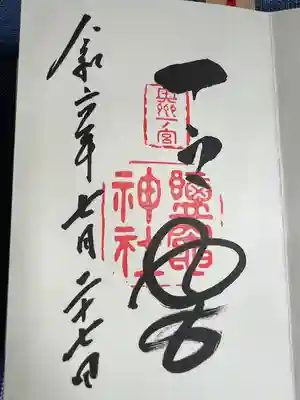 奥州一宮
一之宮
鹽竈
神社
令和六年七月二十七日